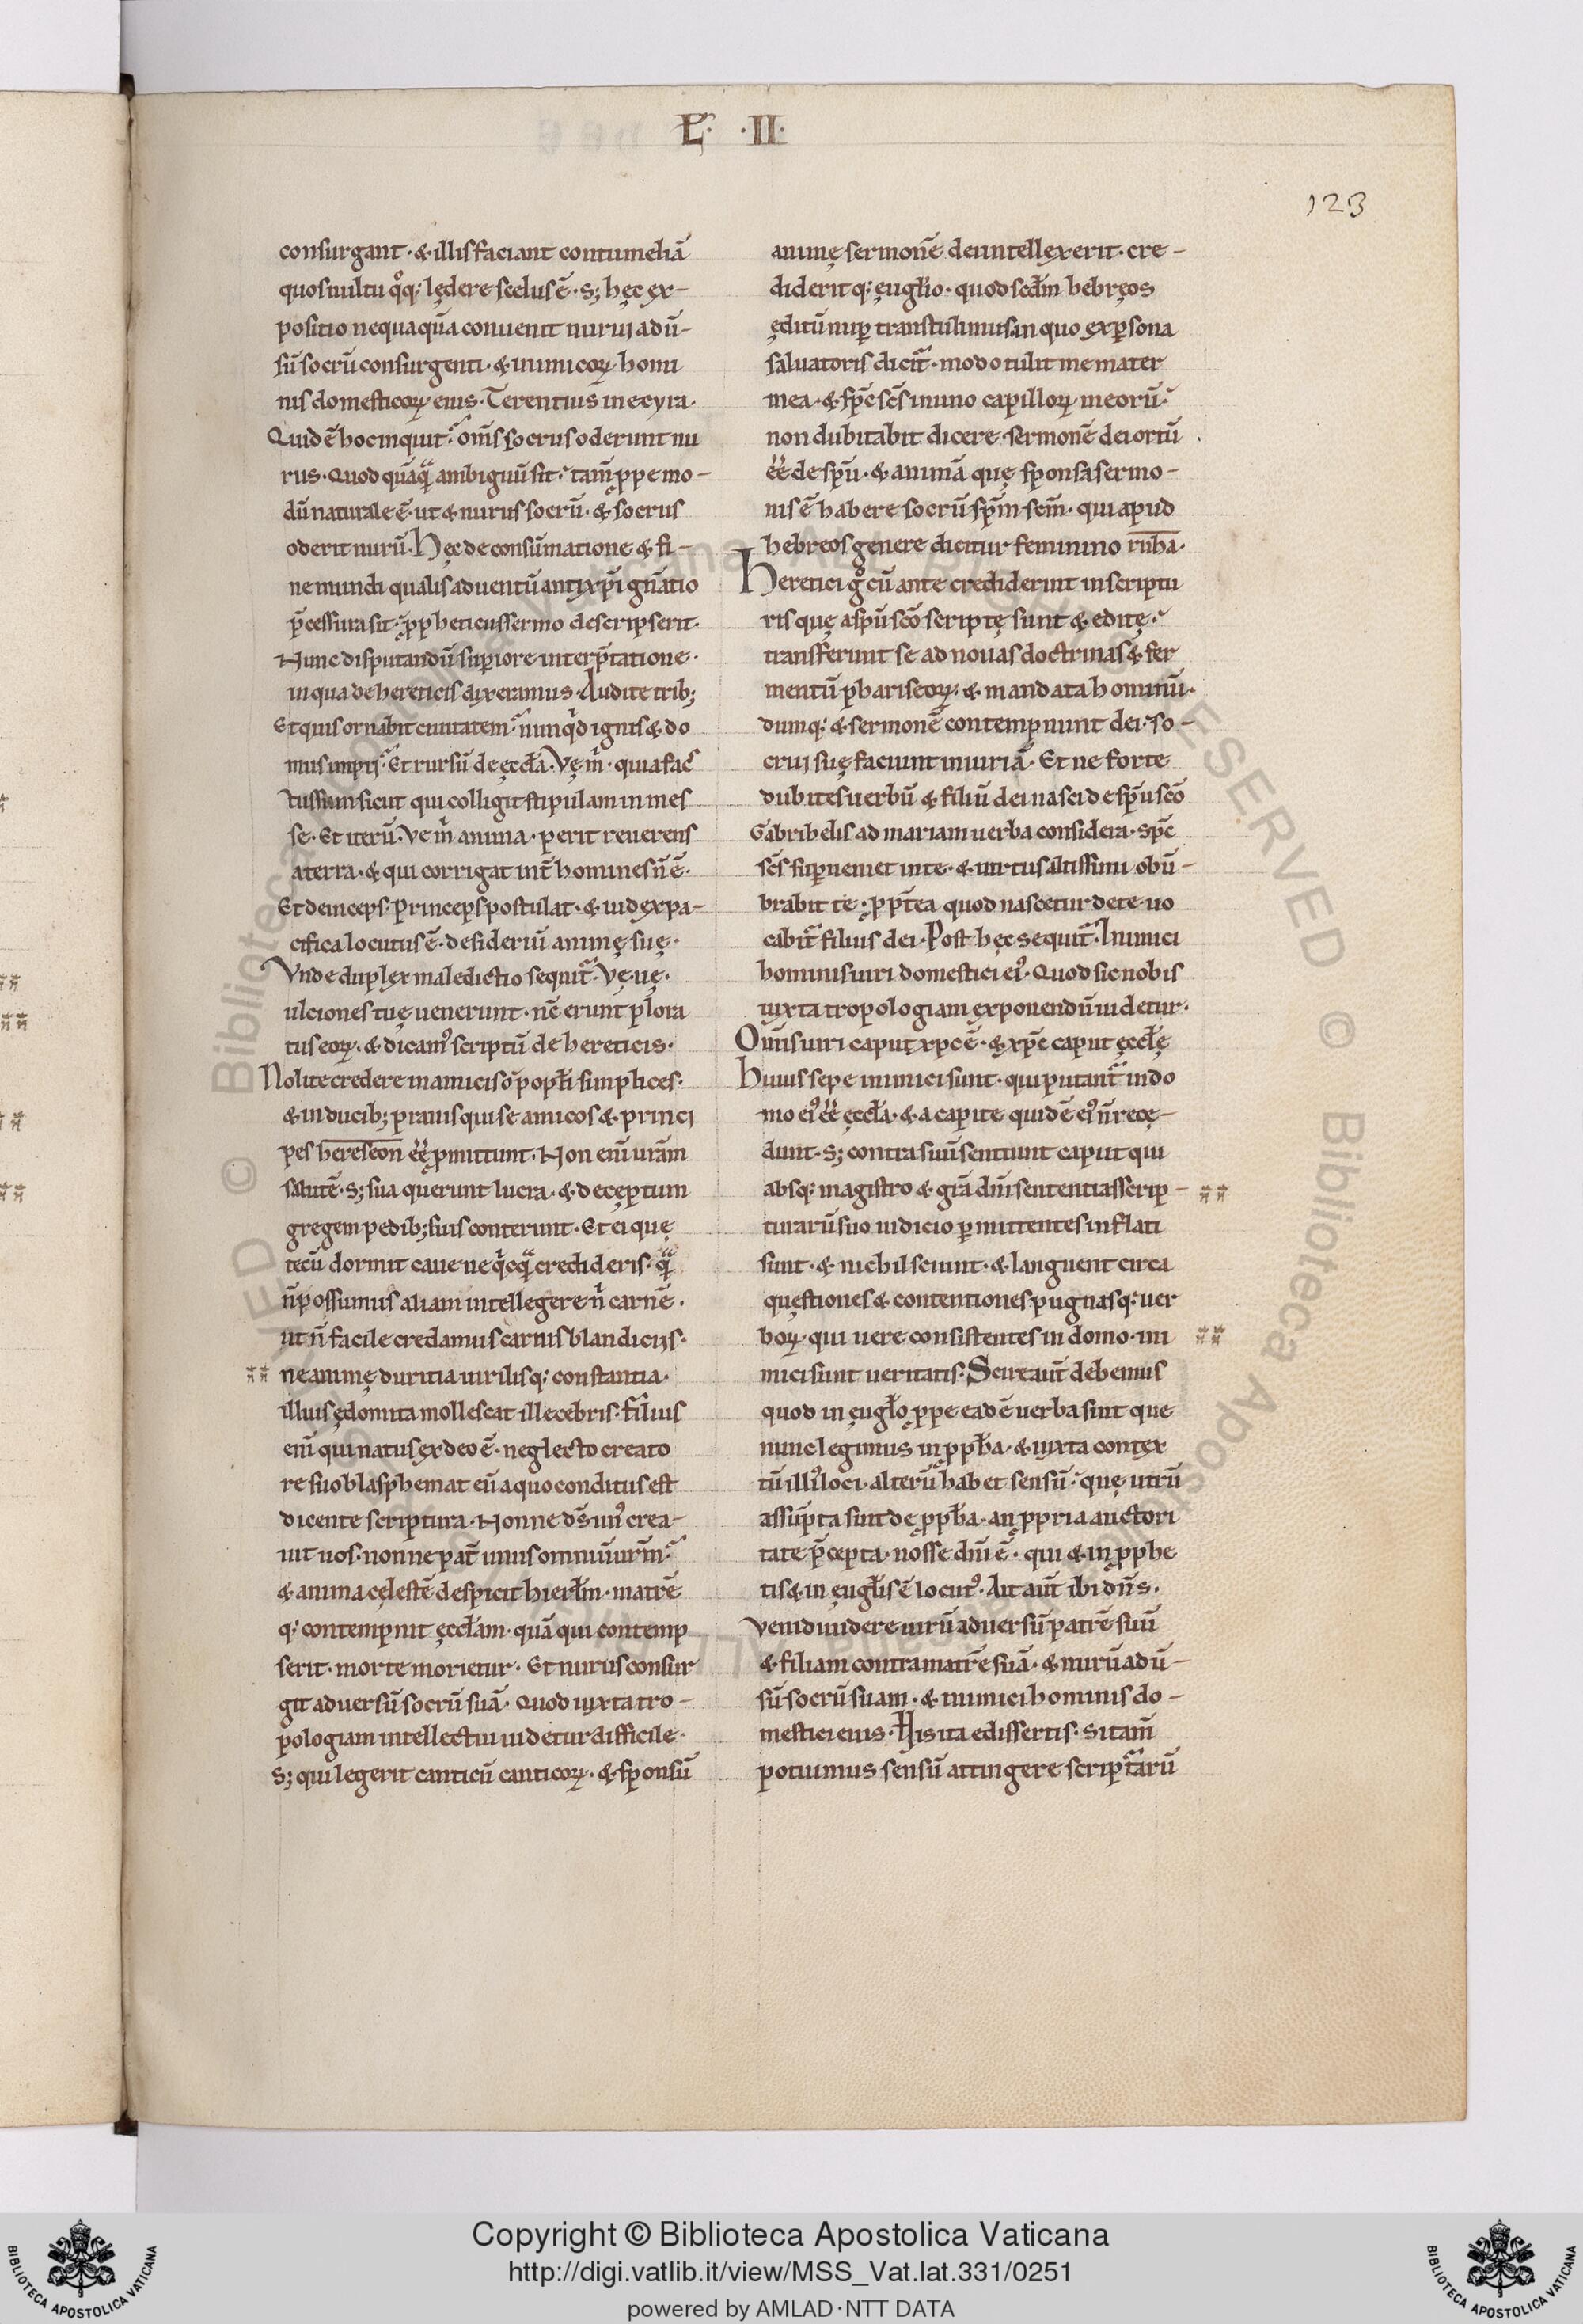 L · II ·
123
consurgant · & illis faciant contumeliā
quos uultu qͦq; lędere scelus ē · s; hęc ex-
positio nequaquā conuenit nurui adū-
sū socrū consurgenti · & inimicoꝝ homi
nis domesticoꝝ eius · Terentius in ecyra ·
Quid ē hoc inquit · oms̄ socrus oderunt nu
rus · Quod quāqͣ ambiguū sit · tam̄ ꝓpemo-
dū naturale ē · ut & nurus socrū · & socrus
oderit nurū · Hęc de consūmatione & fi-
ne mundi qualis aduentū antixp̄i gn̄atio
p̄cessura sit · ꝓpheticus sermo descripserit ·
Nunc disputandū suꝑiore interp̄tatione ·
in qua de hereticis dixeramus · Audite trib;
Et quis ornabit ciuitatem · nunqͥd ignis & do
mus impij · Et rursū de ęccl̄a · Vę m̄ · quia fac̄
tus sum sicut qui colligit stipulam in mes
se · Et iterū · Ve m̄ anima · perit reuerens
a terra · & qui corrigat int̄ homines n̄ ē ·
Et deinceps · Princeps postulat · & iudex pa-
cifica locutus ē · desideriū animę suę ·
Vnde duplex maledictio sequit̄ · Vę uę ·
ulciones tuę uenerunt · nc̄ erunt plora
tus eoꝝ · & dicamꝰ scriptū de hereticis ·
Nolite credere in amicis o popl̄i simplices ·
& in ducib; prauis qui se amicos & princi
pes hereseon ēē ꝓmittunt · Non enī urām
salutē · s; sua querunt lucra · & deceptum
gregem pedib; suis conterunt · Et ei quę
tecū dormit caue ne qͥcqͣ credideris · qͣ
n̄ possumus aliam intellegere n̄ carnē ·
ut n̄ facile credamus carnis blandicijs ·
ne animę duritia uirilisq; constantia ·
illius ędomita mollescat illecebris · Filius
enī qui natus ex deo ē · neglecto creato
re suo blasphemat eū a quo conditus est
dicente scriptura · Nonne ds̄ unꝰ crea-
uit uos · nonne pat̄ unus omniū ur̄m ·
& anima cęlestē despicit hierl̄m · matrē
q; contempnit ęccl̄am · quā qui contemp
serit · morte morietur · Et nurus consur
git aduersū socrū suā · Quod iuxta tro-
pologiam intellectui uidetur difficile ·
S; qui legerit canticū canticoꝝ · & sponsū
animę sermonē dei intellexerit · cre-
diderit q; ęuglīo · quod scd̄m hebręos
ęditū nuꝑ transtulimus in quo ex ꝑsona
saluatoris dicit̄ · modo tulit me mater
mea · & sp̄c sc̄s in uno capilloꝝ meorū ·
non dubitabit dicere sermonē dei ortū
ēē de sp̄u · & animā quę sponsa sermo-
nis ē habere socrū sp̄m sc̄m · qui apud
hebreos genere dicitur feminino ruha ·
Heretici gͦ cū ante crediderint in scriptu
ris quę a sp̄u sc̄o scriptę sunt & editę ·
transferunt se ad nouas doctrinas & fer
mentū phariseoꝝ · & mandata hominū ·
dumq; & sermonē contempnunt dei · so-
crui suę faciunt iniuriā · Et ne forte
dubites uerbū & filiū dei nasci de sp̄u sc̄o
Gabrihelis ad mariam uerba considera · Sp̄c
sc̄s suꝑueniet in te · & uirtus altissimi obū-
brabit te · ꝓpt̄ea quod nascetur de te uo
cabit̄ filius dei · Post hęc sequit̄ · Inimici
hominis uiri domestici eiꝰ · Quod sic nobis
iuxta tropologiam exponendū uidetur ·
Om̄is uiri caput xp̄c ē · & xp̄c caput ęccl̄ę
Huius sepe inimici sunt · qui putant̄ in do
mo eiꝰ ēē ęccl̄a · & a capite quidē eiꝰ n̄ rece-
dunt · s; contra suū sentiunt caput qui
absq; magistro & grā dn̄i sententias scrip-
turarū suo iudicio ꝑmittentes inflati
sunt · & nichil sciunt · & languent circa
questiones & contentiones pugnasq; uer
boꝝ · qui uere consistentes in domo · ini
mici sunt ueritatis · Scire aut̄ debemus
quod in ęugl̄o ꝓpe eadē uerba sint que
nunc legimus in ꝓph̄a · & iuxta contex
tū illiꝰ loci · alterū habet sensū · quę utrū
assūpta sint de ꝓph̄a · an ꝓpria auctori
tate p̄cepta · nosse dn̄i ē · qui & in ꝓphe
tis & in ęugl̄is ē locutꝰ · Ait aut̄ ibi dn̄s ·
Veni diuidere uirū aduersū patrē suū
& filiam contra matrē suā · & nurū adū-
sū socrū suam · & inimici hominis do-
mestici eius · His ita edissertis · si tam̄
potiumus sensū attingere scripturarū
Copyright © Biblioteca Apostolica Vaticana
http://digi.vatlib.it/view/MSS_Vat.lat.331/0251
powered by AMLAD·NTT DATA
BIBLIOTECA APOSTOLICA VATICANA
BIBLIOTECA APOSTOLICA VATICANA